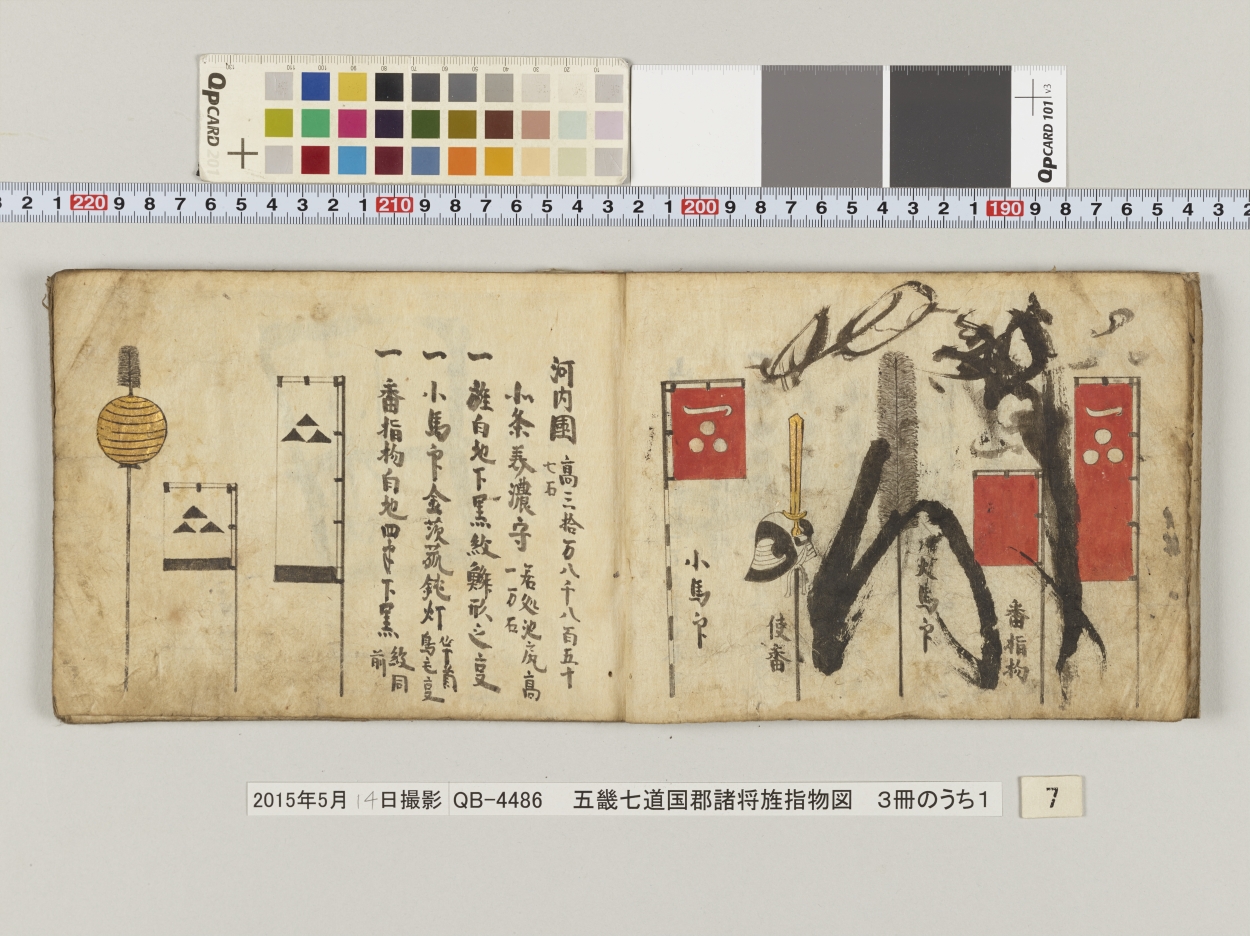 QPCARD 201
QPCARD 101 v3
3 2 1 220 9 8 7 6 5 4 3 2 1 210 9 8 7 6 5 4 3 2 1 200 9 8 7 6 5 4 3 2 1 190 9 8 7 6 5 4 3 2
番指物
大馬印
使番
小馬印
河内國 高三拾万八千八百五十
七石
北条美濃守 居処池尻高
一万石
一 旌白地下黒紋鱗形之変
一 小馬印金茨菰鈍灯 竿首
鳥毛変
一 番指物白地四半下黒 紋同
前
2015年5月14日撮影 QB-4486 五畿七道国郡諸将旌指物図 3冊のうち1
7